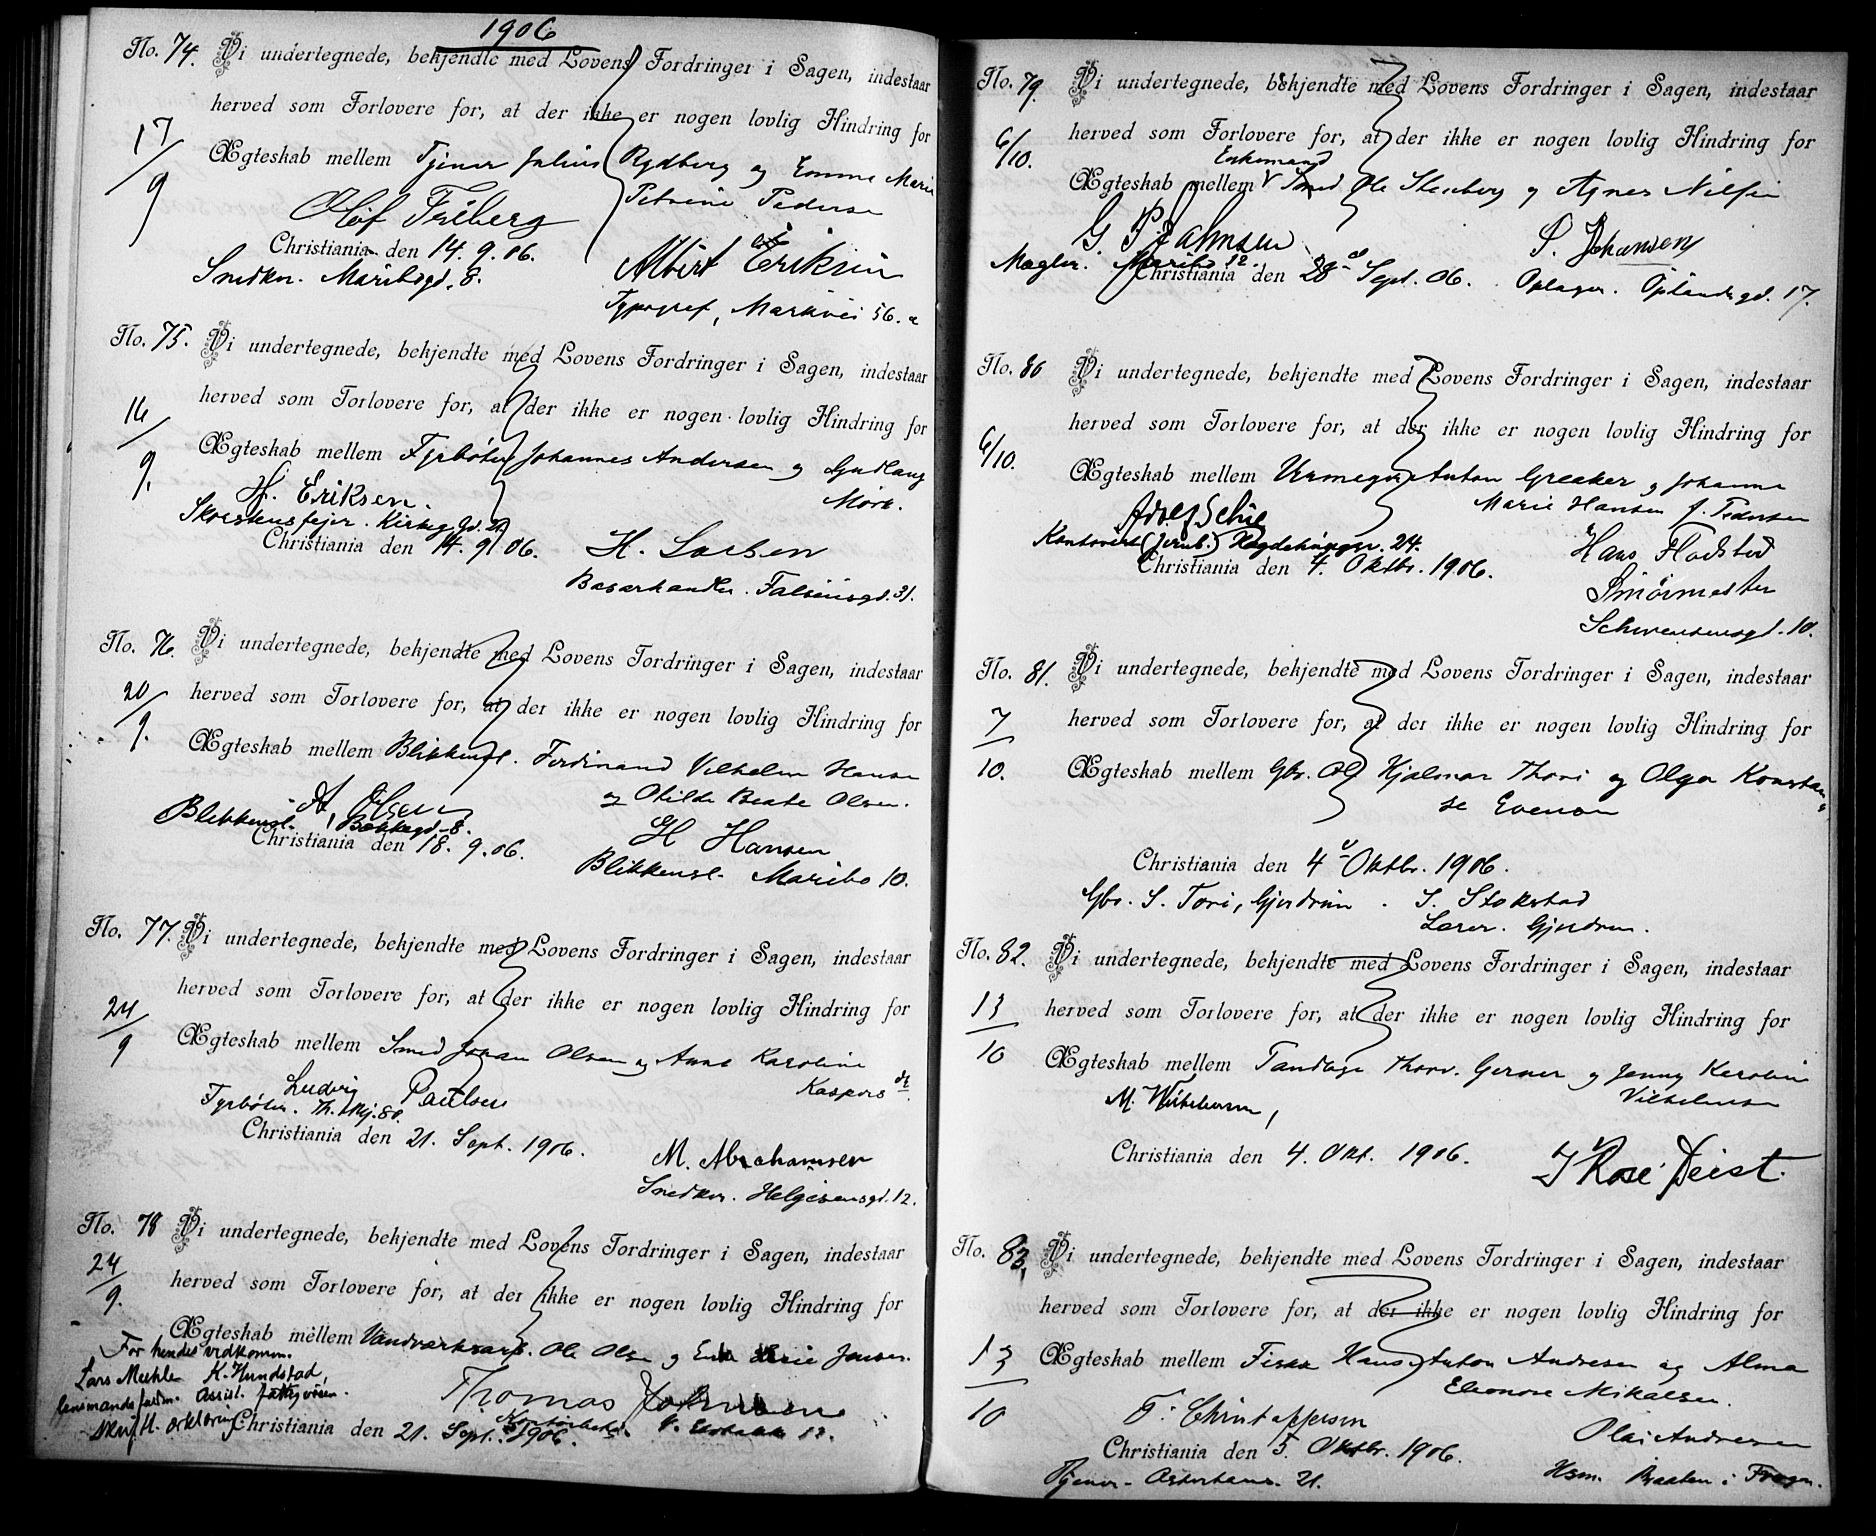 1906
No. 74. Vi undertegnede, bekjendte med Lovens Fordringer i Sagen, indestaar
herved som Forlovere for, at der ikke er nogen lovlig Hindring for
17/9
Ægteskab mellem Tjener Julius Rydberg og Emma Marie
Petrine Pederse
Olof Friberg
Christiania den 14. 9. 06.
Snedker. Maribogd. 8.
Albert Eriksen
Typograf, Markvei 56. a
No. 75. Vi undertegnede, bekjendte med Lovens Fordringer i Sagen, indestaar
herved som Forlovere for, at der ikke er nogen lovlig Hindring for
16/9.
Ægteskab mellem Fyrbøter Johannes Andersen og Gudlaug
Mork.
H. Eriksen.
Skorstensfejer. Kirkeg. Gd.
Christiania den 14. 9. 06.
H. Larsen
Basarhandler. Falsensgd. 31.
No. 76. Vi undertegnede, bekjendte med Lovens Fordringer i Sagen, indestaar
herved som Forlovere for, at der ikke er nogen lovlig Hindring for
20/9.
Ægteskab mellem Blikkensl. Ferdinand Vilhelm Hansen
og Otilde Beate Olsen.
A. Olsen
Blikkensl. Bakkegd. 8.
Christiania den 18. 9. 06.
H Hansen
Blikkensl. Maribo 10.
No. 77. Vi undertegnede, bekjendte med Lovens Fordringer i Sagen, indestaar
herved som Forlovere for, at der ikke er nogen lovlig Hindring for
24/9
Ægteskab mellem Smed Johan Olsen og Anna Karoline
Kaspersdt.
Ludvig Paulsen
Fyrbøter. Th. Mj. 80.
Christiania den 21. Sept. 1906.
M. Abrahamsen
Snedker. Helgesensgd. 12.
No. 78 Vi undertegnede, bekjendte med Lovens Fordringer i Sagen, indestaar
herved som Forlovere for, at der ikke er nogen lovlig Hindring for
24/9.
Ægteskab mellem Vandværksarb. Ole Olsen og Marie Jensen.
For hendes vedkomm.
Lars Mæhle K. Hundstad,
lensmandsfuldm. Assist. fattigvæsen.
skriftl. erklæring
Thomas Johnsen
Christiania den 21. Sept. 1906.
No. 79. Vi undertegnede, bekjendte med Lovens Fordringer i Sagen, indestaar
herved som Forlovere for, at der ikke er nogen lovlig Hindring for
6/10.
Enkemand
Ægteskab mellem Smed Ole Stenberg og Agnes Nilsen
G Johnsen
S. Johansen
Mægler. Maribo 12.
Christiania den 28 d Sept. 06. Oplager. Oplandsgd. 17.
No. 80 Vi undertegnede, bekjendte med Lovens Fordringer i Sagen, indestaar
herved som Forlovere for, at der ikke er nogen lovlig Hindring for
6/10.
Ægteskab mellem Urmager Anton Greaker og Johanne
Marie Hansen f. Pedersen
Adolf Schie
Kontorist (Jernb.) Hegdehaugsv. 24.
Christiania den 4. Oktbr. 1906.
Hans Flodstad
Smörmester
Schwensensgd. 10.
No. 81. Vi undertegnede, bekjendte med Lovens Fordringer i Sagen, indestaar
herved som Forlovere for, at der ikke er nogen lovlig Hindring for
7/10.
Ægteskab mellem Gbr. Ole Hjalmar Thori og Olga Konstan-
se Evensen
Christiania den 4 d Oktbr. 1906.
Gbr. S. Tori, Gjerdrum. S. Stokstad
Lærer. Gjerdrum.
No. 82. Vi undertegnede, bekjendte med Lovens Fordringer i Sagen, indestaar
herved som Forlovere for, at der ikke er nogen lovlig Hindring for
13/10
Ægteskab mellem Tandlæge Thorv. Gerner og Jenny Karoline
Vilhelmsen
M. Wilhelmsen,
Christiania den 4. Okt. 1906.
J Rose Deist.
No. 83, Vi undertegnede, bekjendte med Lovens Fordringer i Sagen, indestaar
herved som Forlovere for, at der ikke er nogen lovlig Hindring for
13/10
Ægteskab mellem Fisker Hans Anton Andresen og Alma
Eleonore Mikalsen.
T. Christoffersen
Olai Andresen
Christiania den 5 Oktbr. 1906.
Tjener - Akerhaus. 21.
Hsm. Braaten i Frogn.